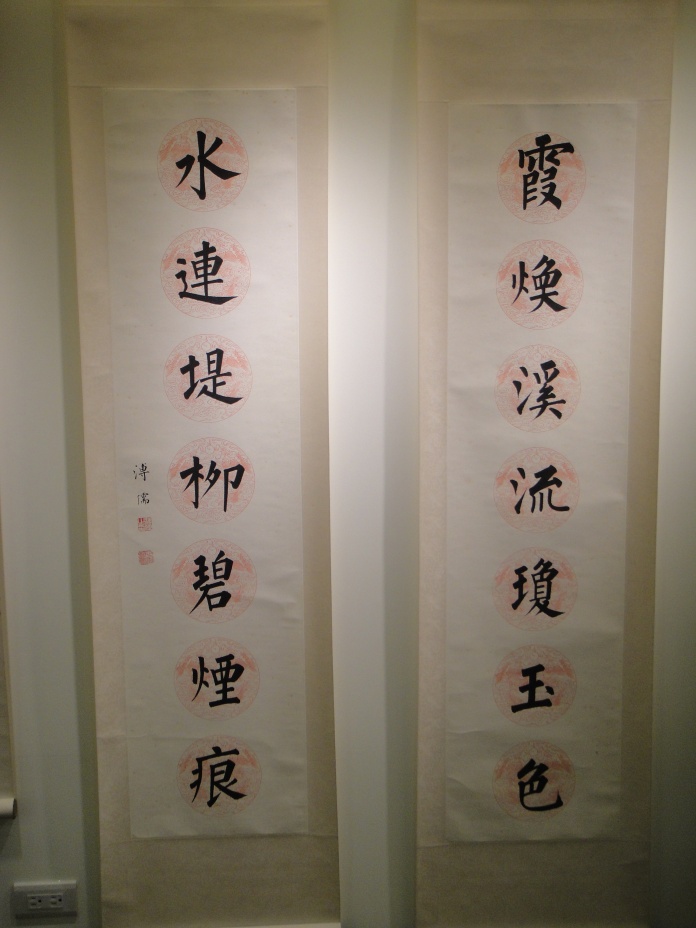 霞煥溪流瓊玉色
水連堤柳碧煙痕
溥儒